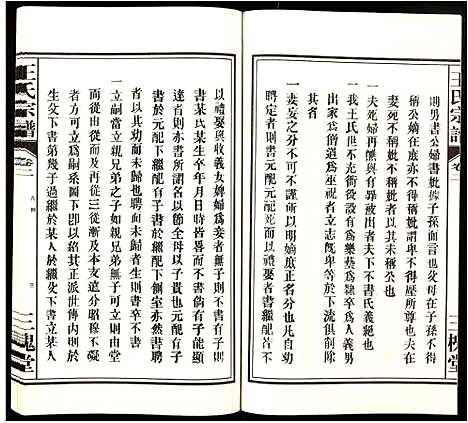 王氏宗譜
卷二
三槐堂
則男書公婦書妣據子孫而言也與母以子貴之義同
稱公嫡在庶亦不得稱妣謂卑不得壓所尊也夫在
妻死不稱妣不稱妣者以其未稱公也
一夫死婦再醮與有罪被出者夫下不書氏義絕也
一我王氏世不充衙役設有不肖子孫玷辱家聲
出家爲僧道爲巫覡卑汙下流俱削除
其名
一妻妾之分不可不明以明嫡庶正名分也凡
聘定者則書元配元配死而以禮娶者書繼配若
以禮娶與收義女婢婦爲妾有子則書無子則不書
書某爲某生卒年月日時皆畧而不書倘有子能顯
達者則亦書所謂名以節全母以子貴也元配有子
書於元配下繼配有子書於繼配下側室亦然書男
者以其幼而未歸也書聘而未歸者生則書死則不書
一立嗣當立親兄弟之子如親兄弟無子可立則由堂
而由從而再從三從漸及本支遠分昭穆不礙
者方可立爲嗣系圖下卽以紹其正派世傳內則于
生父下書第幾子過繼於某人於繼父下書立某人
王氏宗譜
卷二
三
三槐堂